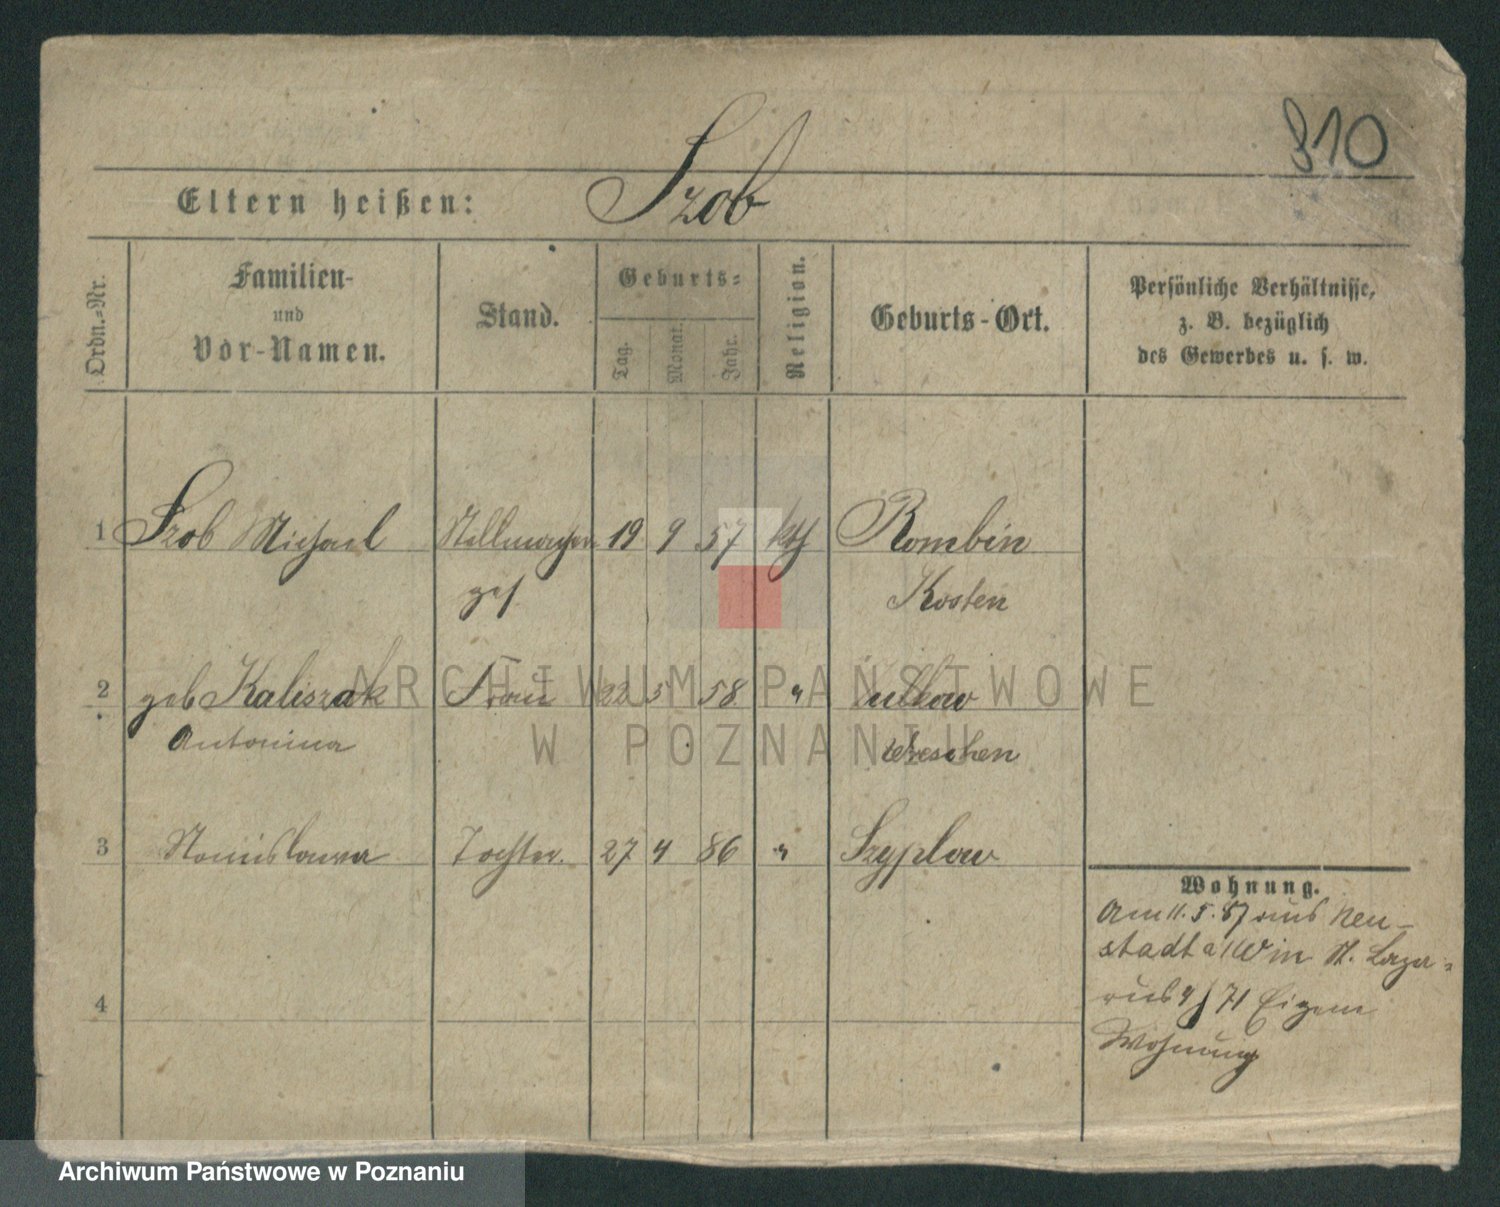 810
Eltern heißen: Szob
Ordn.-Nr.
Familien-
und
Vor-Namen.
Stand.
Geburts-
Tag.
Monat.
Jahr.
Religion.
Geburts-Ort.
Persönliche Verhältnisse,
z. B. bezüglich
des Gewerbes u. s. w.
1 Szob Michael Stellmacher 19 9 57 kth Rombin
ges. Kosten
2 geb Kaliszak Frau 22 5 58 "
Antonina Wreschen
3 Stanislawa Tochter. 27 4 86 " Szyplow
4
Wohnung.
Am 11. 5. 87 aus Neu-
stadt a/W in St. Laza-
rus 4/71 Eigene
Wohnung
ARCHIWUM PAŃSTWOWE
W POZNANIU
Archiwum Państwowe w Poznaniu